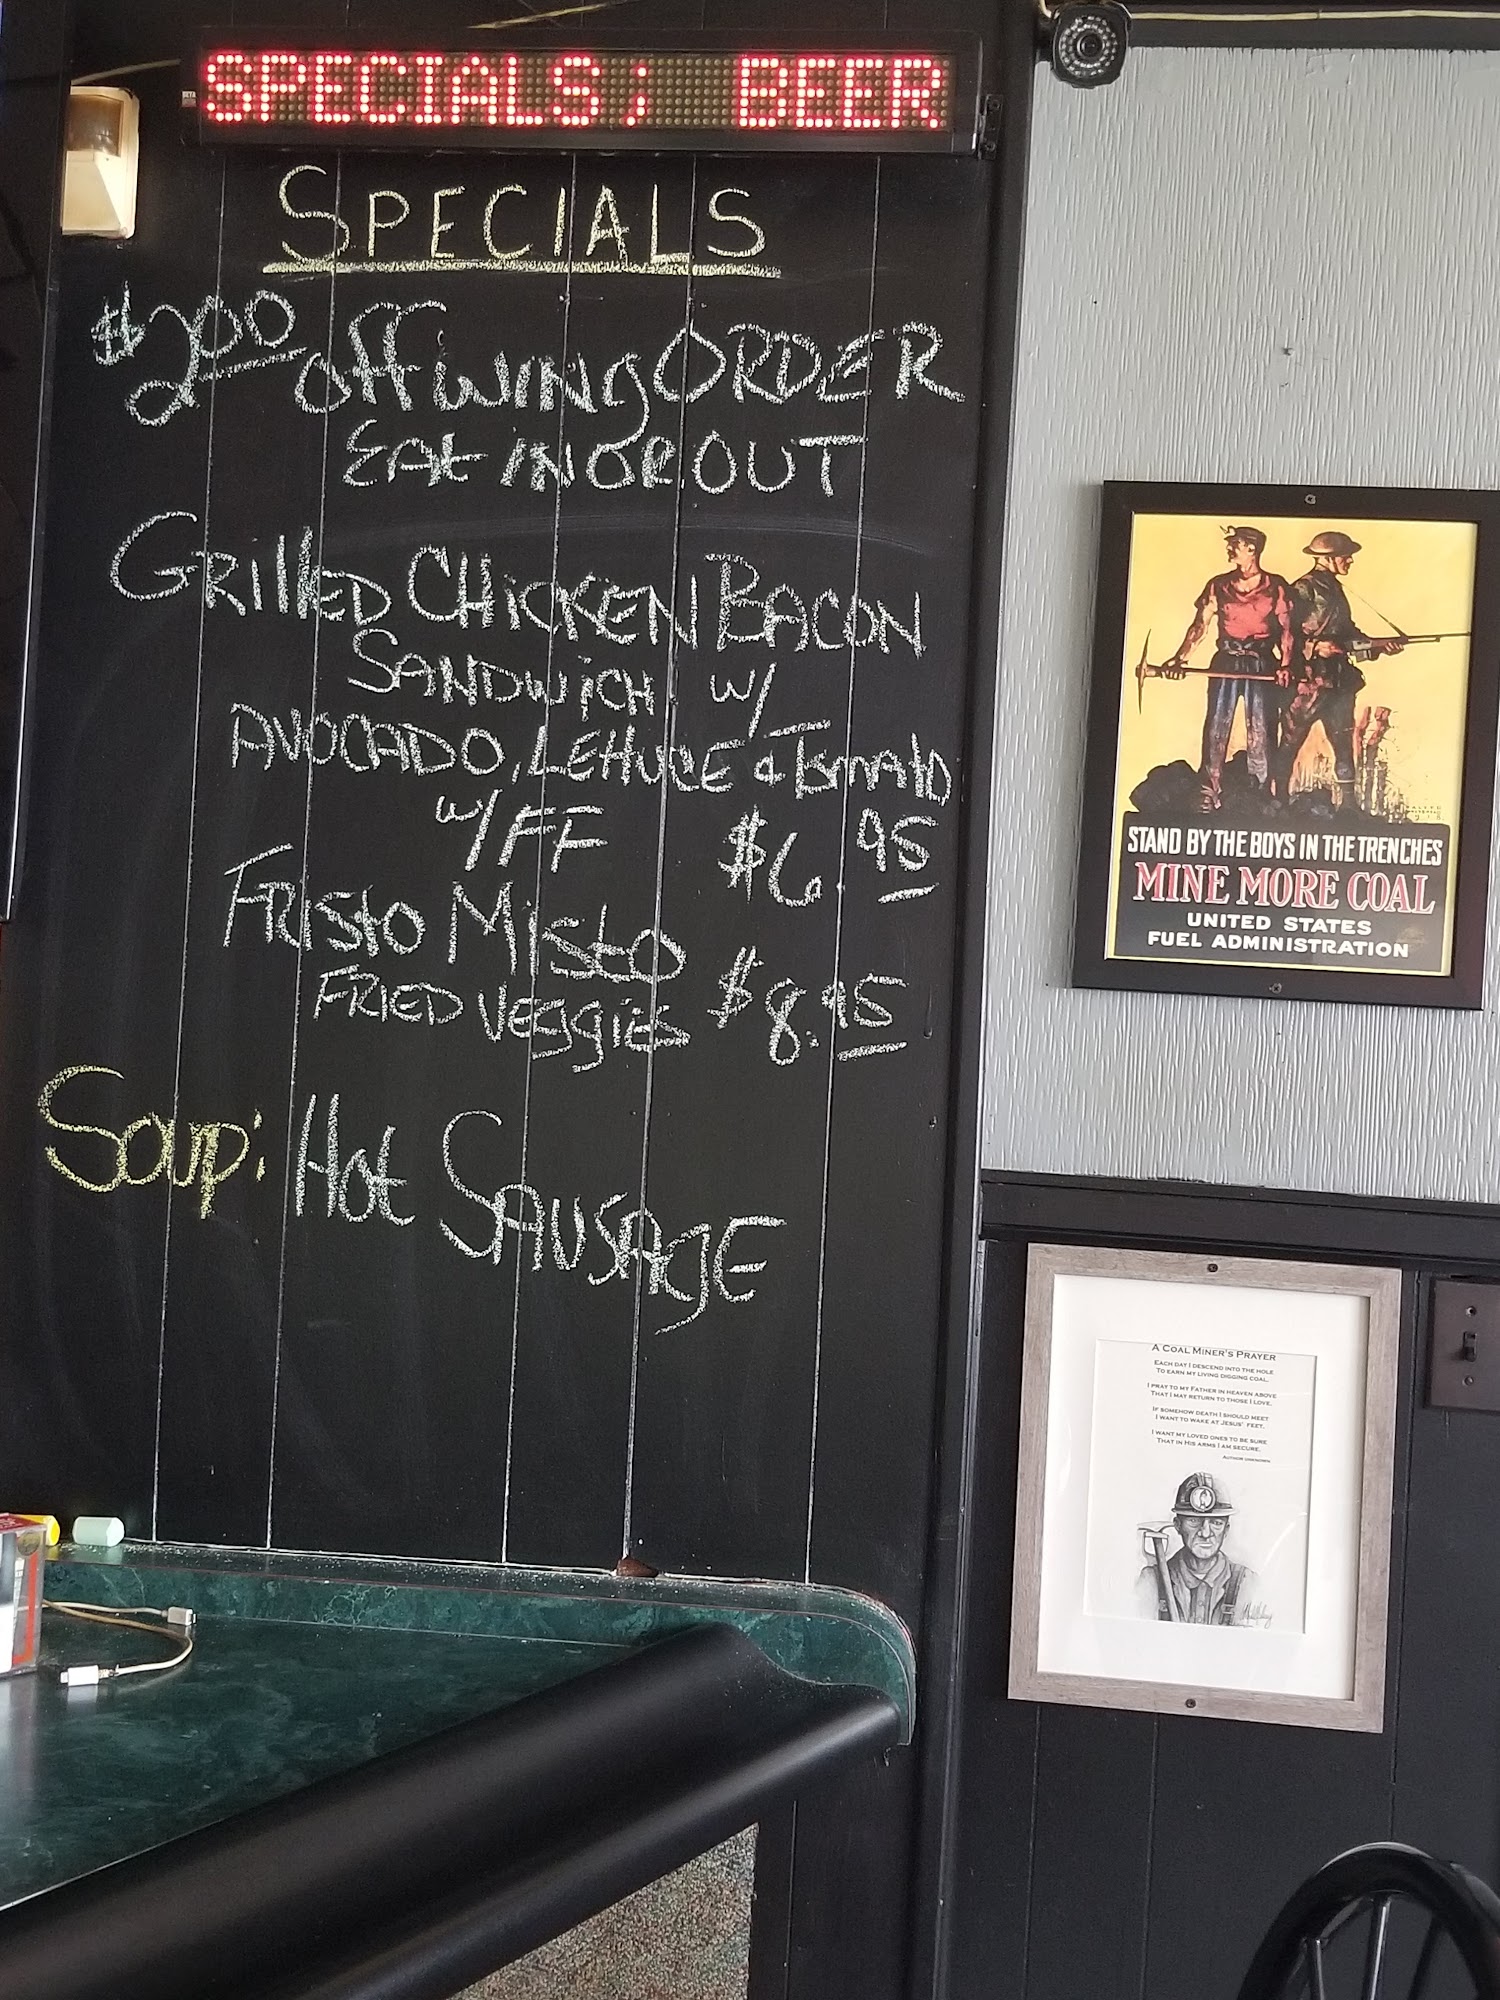 SPECIALS; BEER
SPECIALS
$2.00 Off WING ORDER
EAt IN OR OUT
GRILLED CHICKEN BACON
SANDWICH W/
AVOCADO, LETTUCE & TOMATO
W/ FF $6.95
FRISTO MISTO
FRIED VEGGIES $8.95
SOUP: Hot SAUSAGE
STAND BY THE BOYS IN THE TRENCHES
MINE MORE COAL
UNITED STATES
FUEL ADMINISTRATION
A COAL MINER'S PRAYER
EACH DAY I DESCEND INTO THE HOLE
TO EARN MY LIVING DIGGING COAL.
I PRAY TO MY FATHER IN HEAVEN ABOVE
THAT I MAY RETURN TO THOSE I LOVE.
IF SOMEHOW DEATH I SHOULD MEET
I WANT TO WAKE AT JESUS' FEET.
I WANT MY LOVED ONES TO BE SURE
THAT IN HIS ARMS I AM SECURE.
AUTHOR UNKNOWN